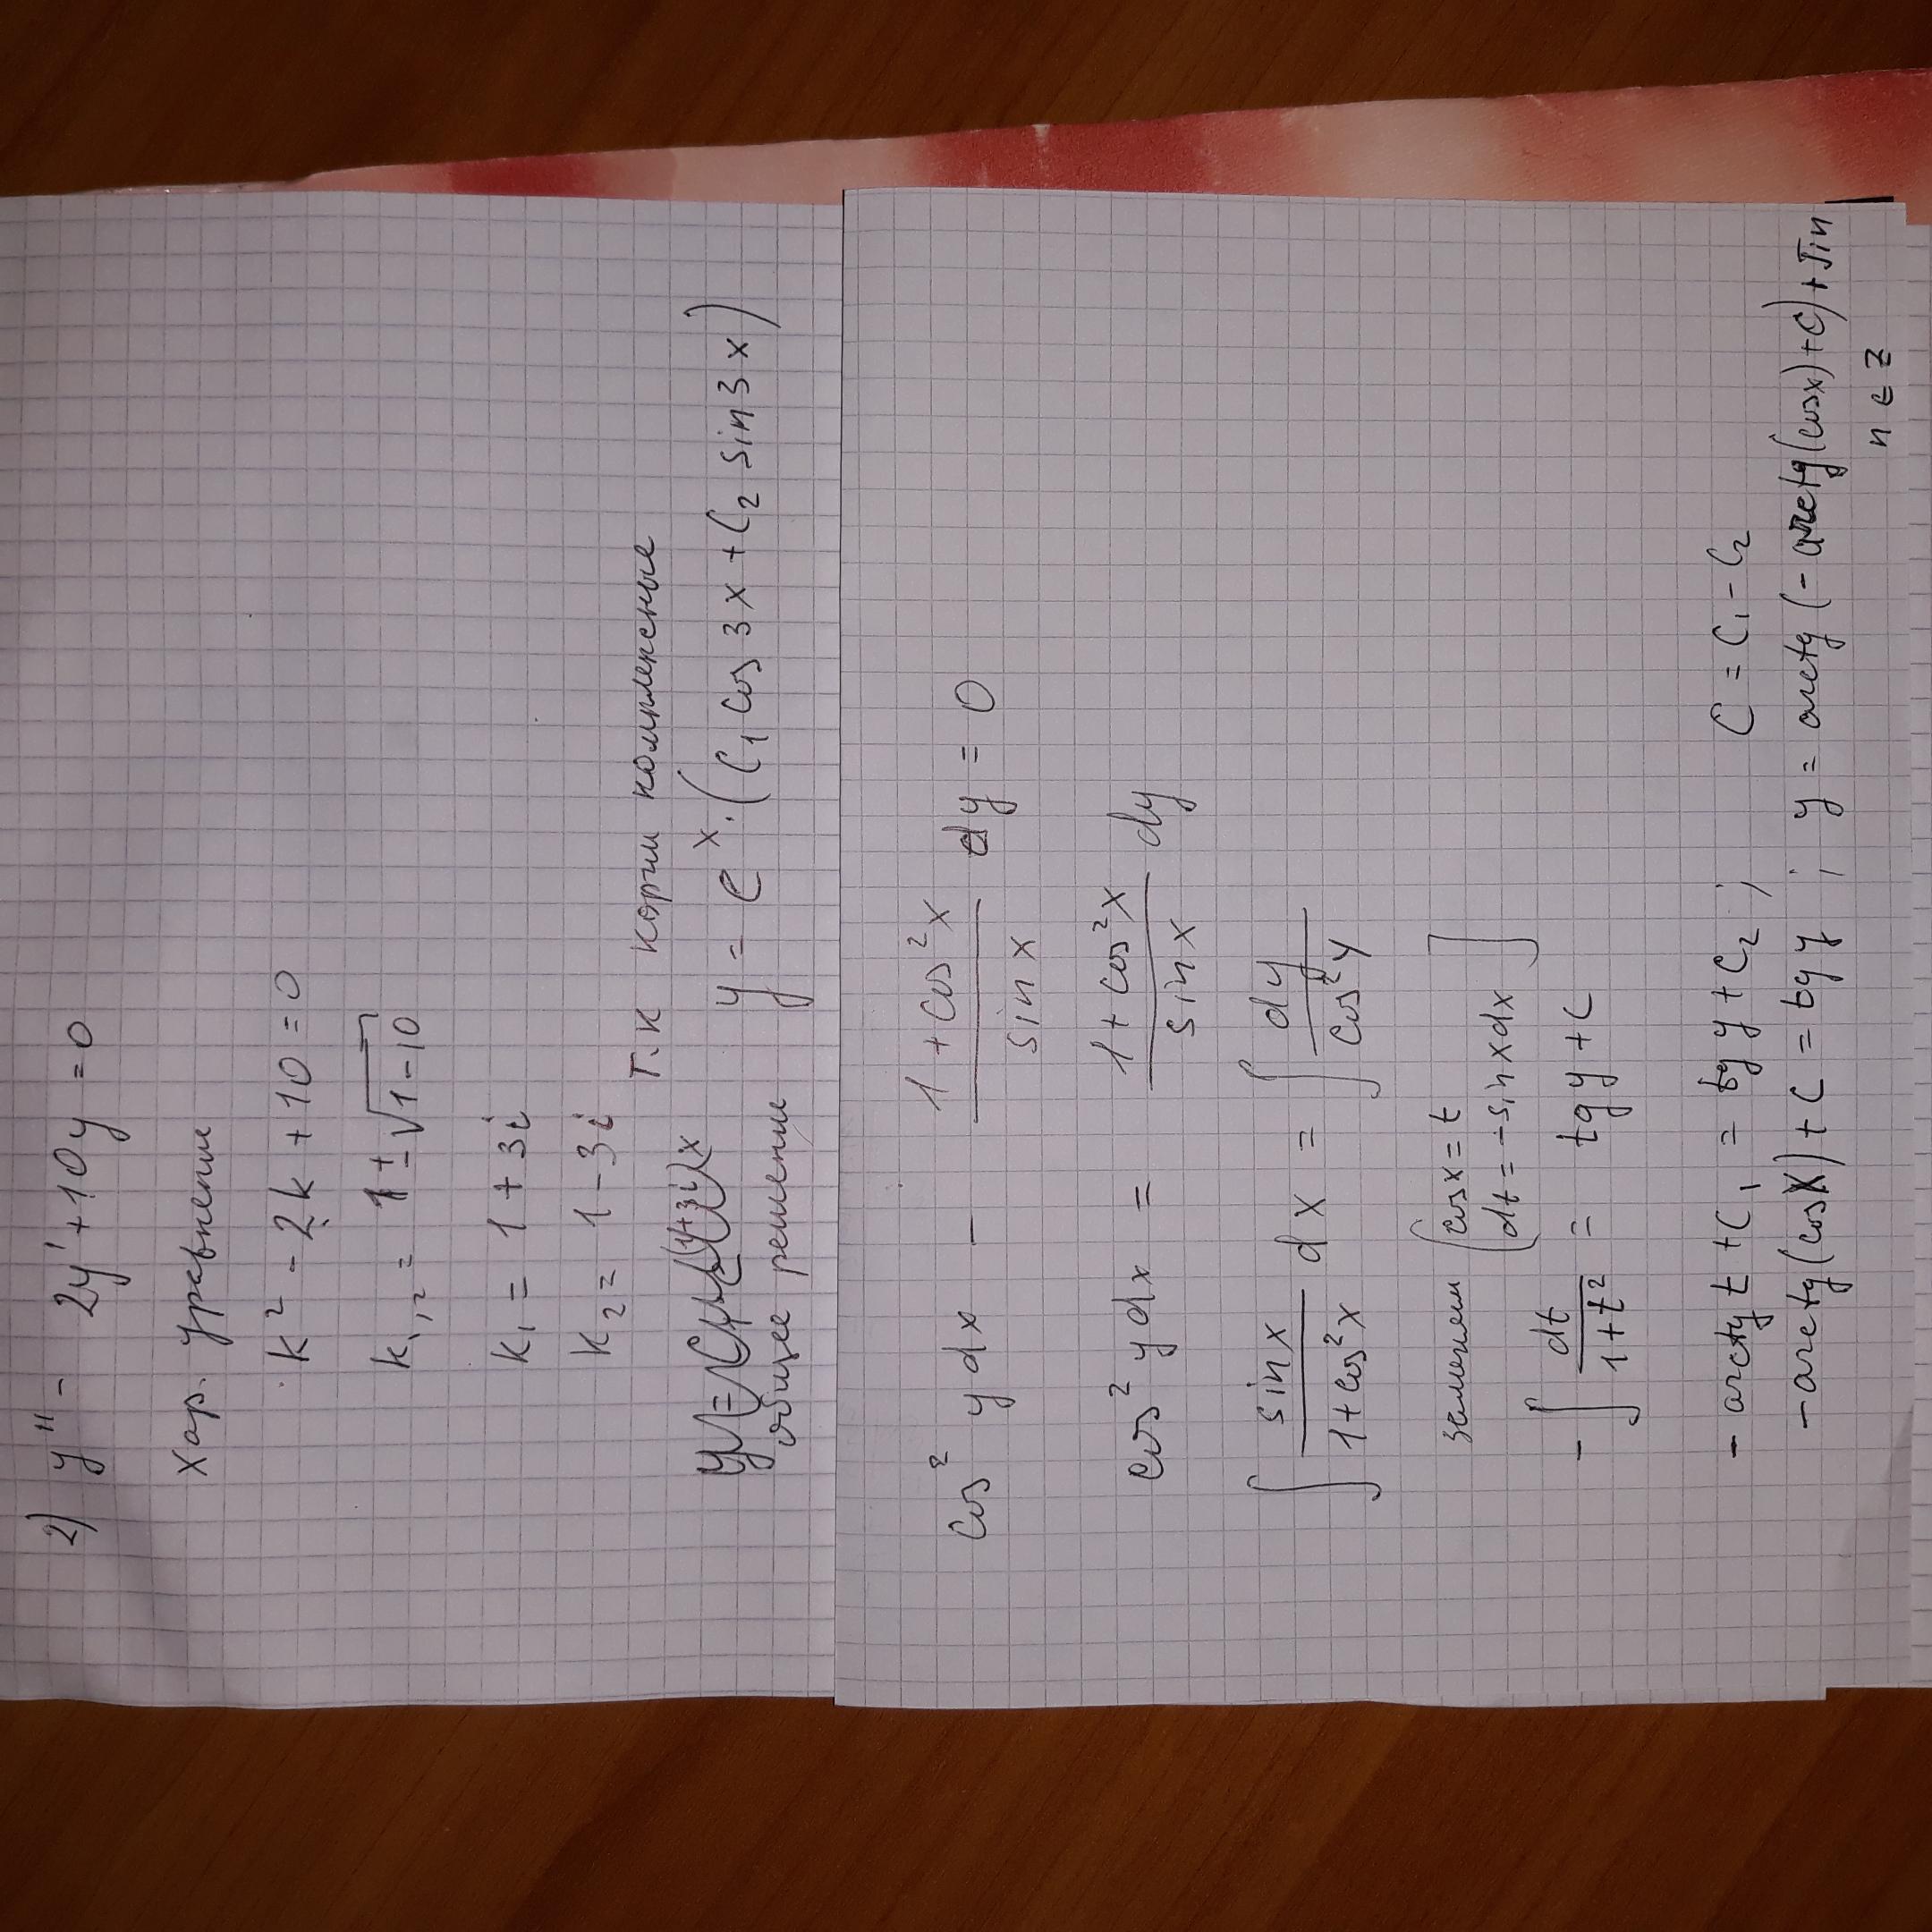 2) y'' - 2y' + 10y = 0
Хар. уравнение
k² - 2k + 10 = 0
k₁,₂ = 1 ± √1-10
k₁ = 1 + 3i
k₂ = 1 - 3i
Т.к корни комплексные
общее решение y = e^x · (C₁ cos 3x + C₂ sin 3x)
cos² y dx - (1 + cos² x)/(sin x) dy = 0
cos² y dx = (1 + cos² x)/(sin x) dy
∫ (sin x)/(1 + cos² x) dx = ∫ dy/(cos² y)
заменим [cos x = t
dt = -sin x dx]
- ∫ dt/(1 + t²) = tg y + C
- arctg t + C₁ = tg y + C₂ ; C = C₁ - C₂
- arctg (cos x) + C = tg y ; y = arctg (- arctg (cos x) + C) + πn
n ∈ Z